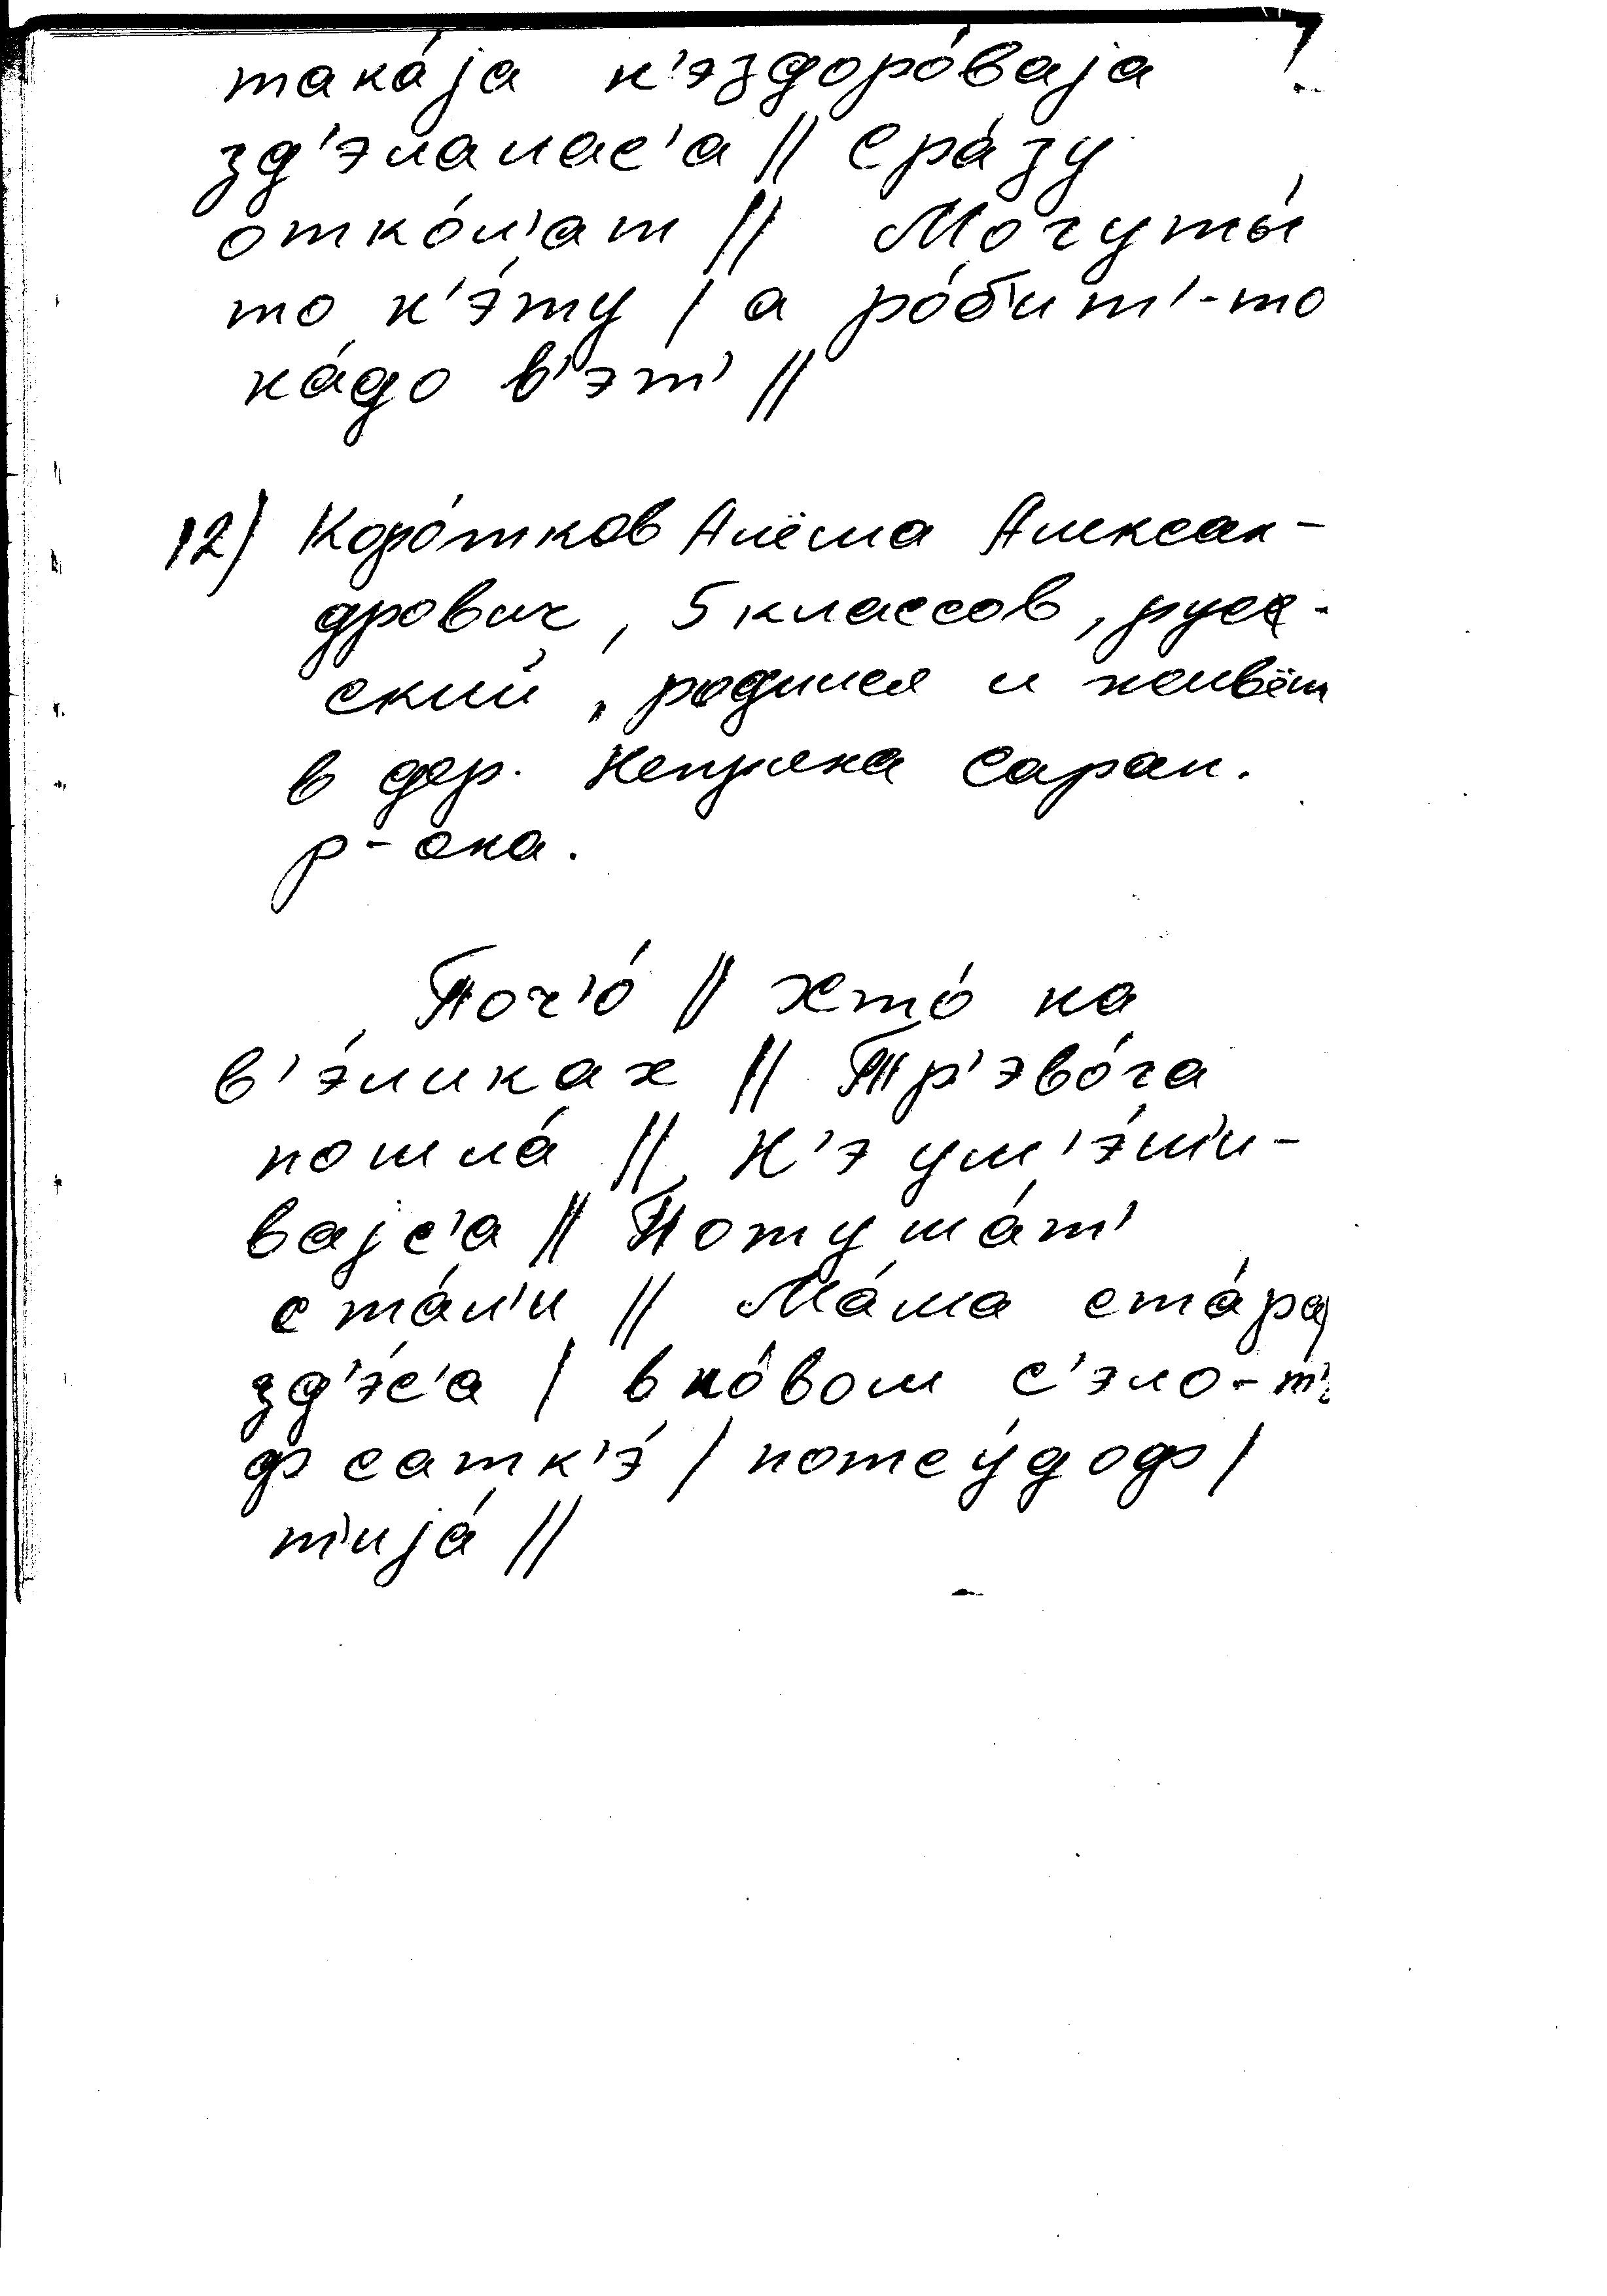 така́jа н'эздоро́ваjа
зд'элалас'а || Сра́зу
отко́л'ат || Могуты́
то н'э́ту / а ро́б'ит'-то
на́до в'эт' ||
12) Коро́тков Алёша Алексан-
дрович, 5 классов, рус-
ский, родился и живёт
в дер. Непряха Сарап.
р-она.
Поч'о́ || Хто́ на
в'э́ликах || Тр'эво́га
пошла́ || Н'э ум'э́ш'и-
вајс'а || Потуша́т'
ста́л'и || Ма́ма ста́раj
зд'э́с'а / в но́вом с'эло-т'
ф сатк'э́ / потсу́доф /
т'иjа́ ||